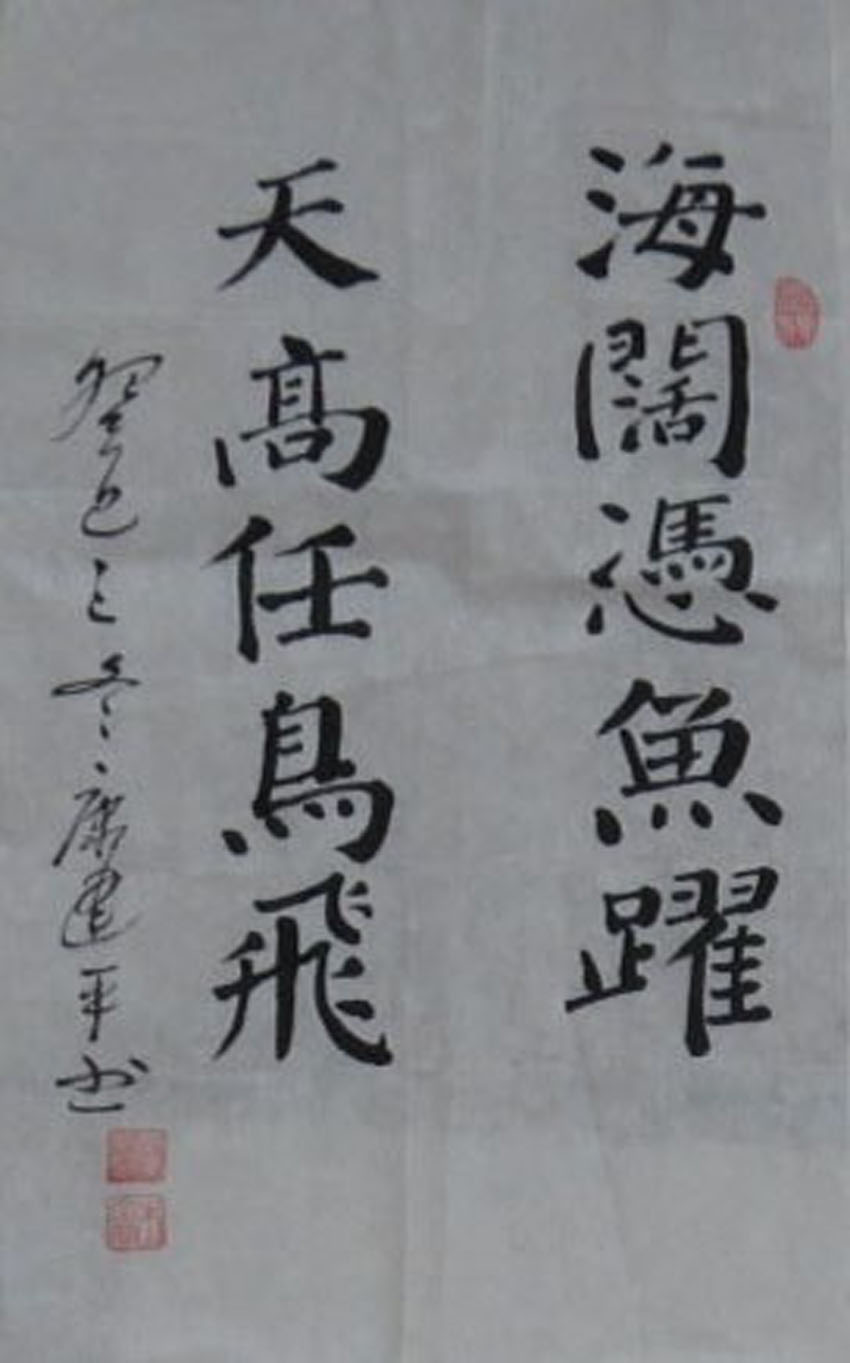 海闊憑魚躍
天高任鳥飛
癸巳之冬康建平书